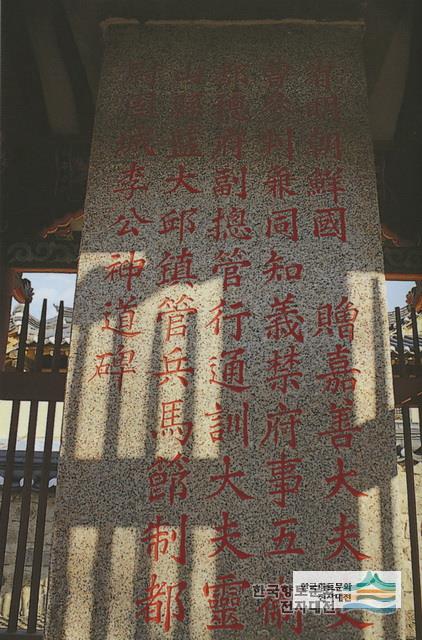 有明朝鮮國 贈嘉善大夫吏
曹參判兼同知義禁府事五衛
都總府副總管行通訓大夫靈
山縣監大邱鎭管兵馬節制都
尉固城李公神道碑
한국향토문화
전자대전
한국향토문화
전자대전